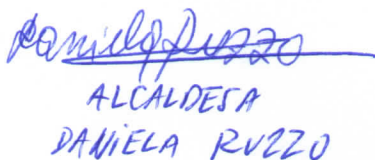 Daniela Ruzzo
ALCALDESA
DANIELA RUZZO